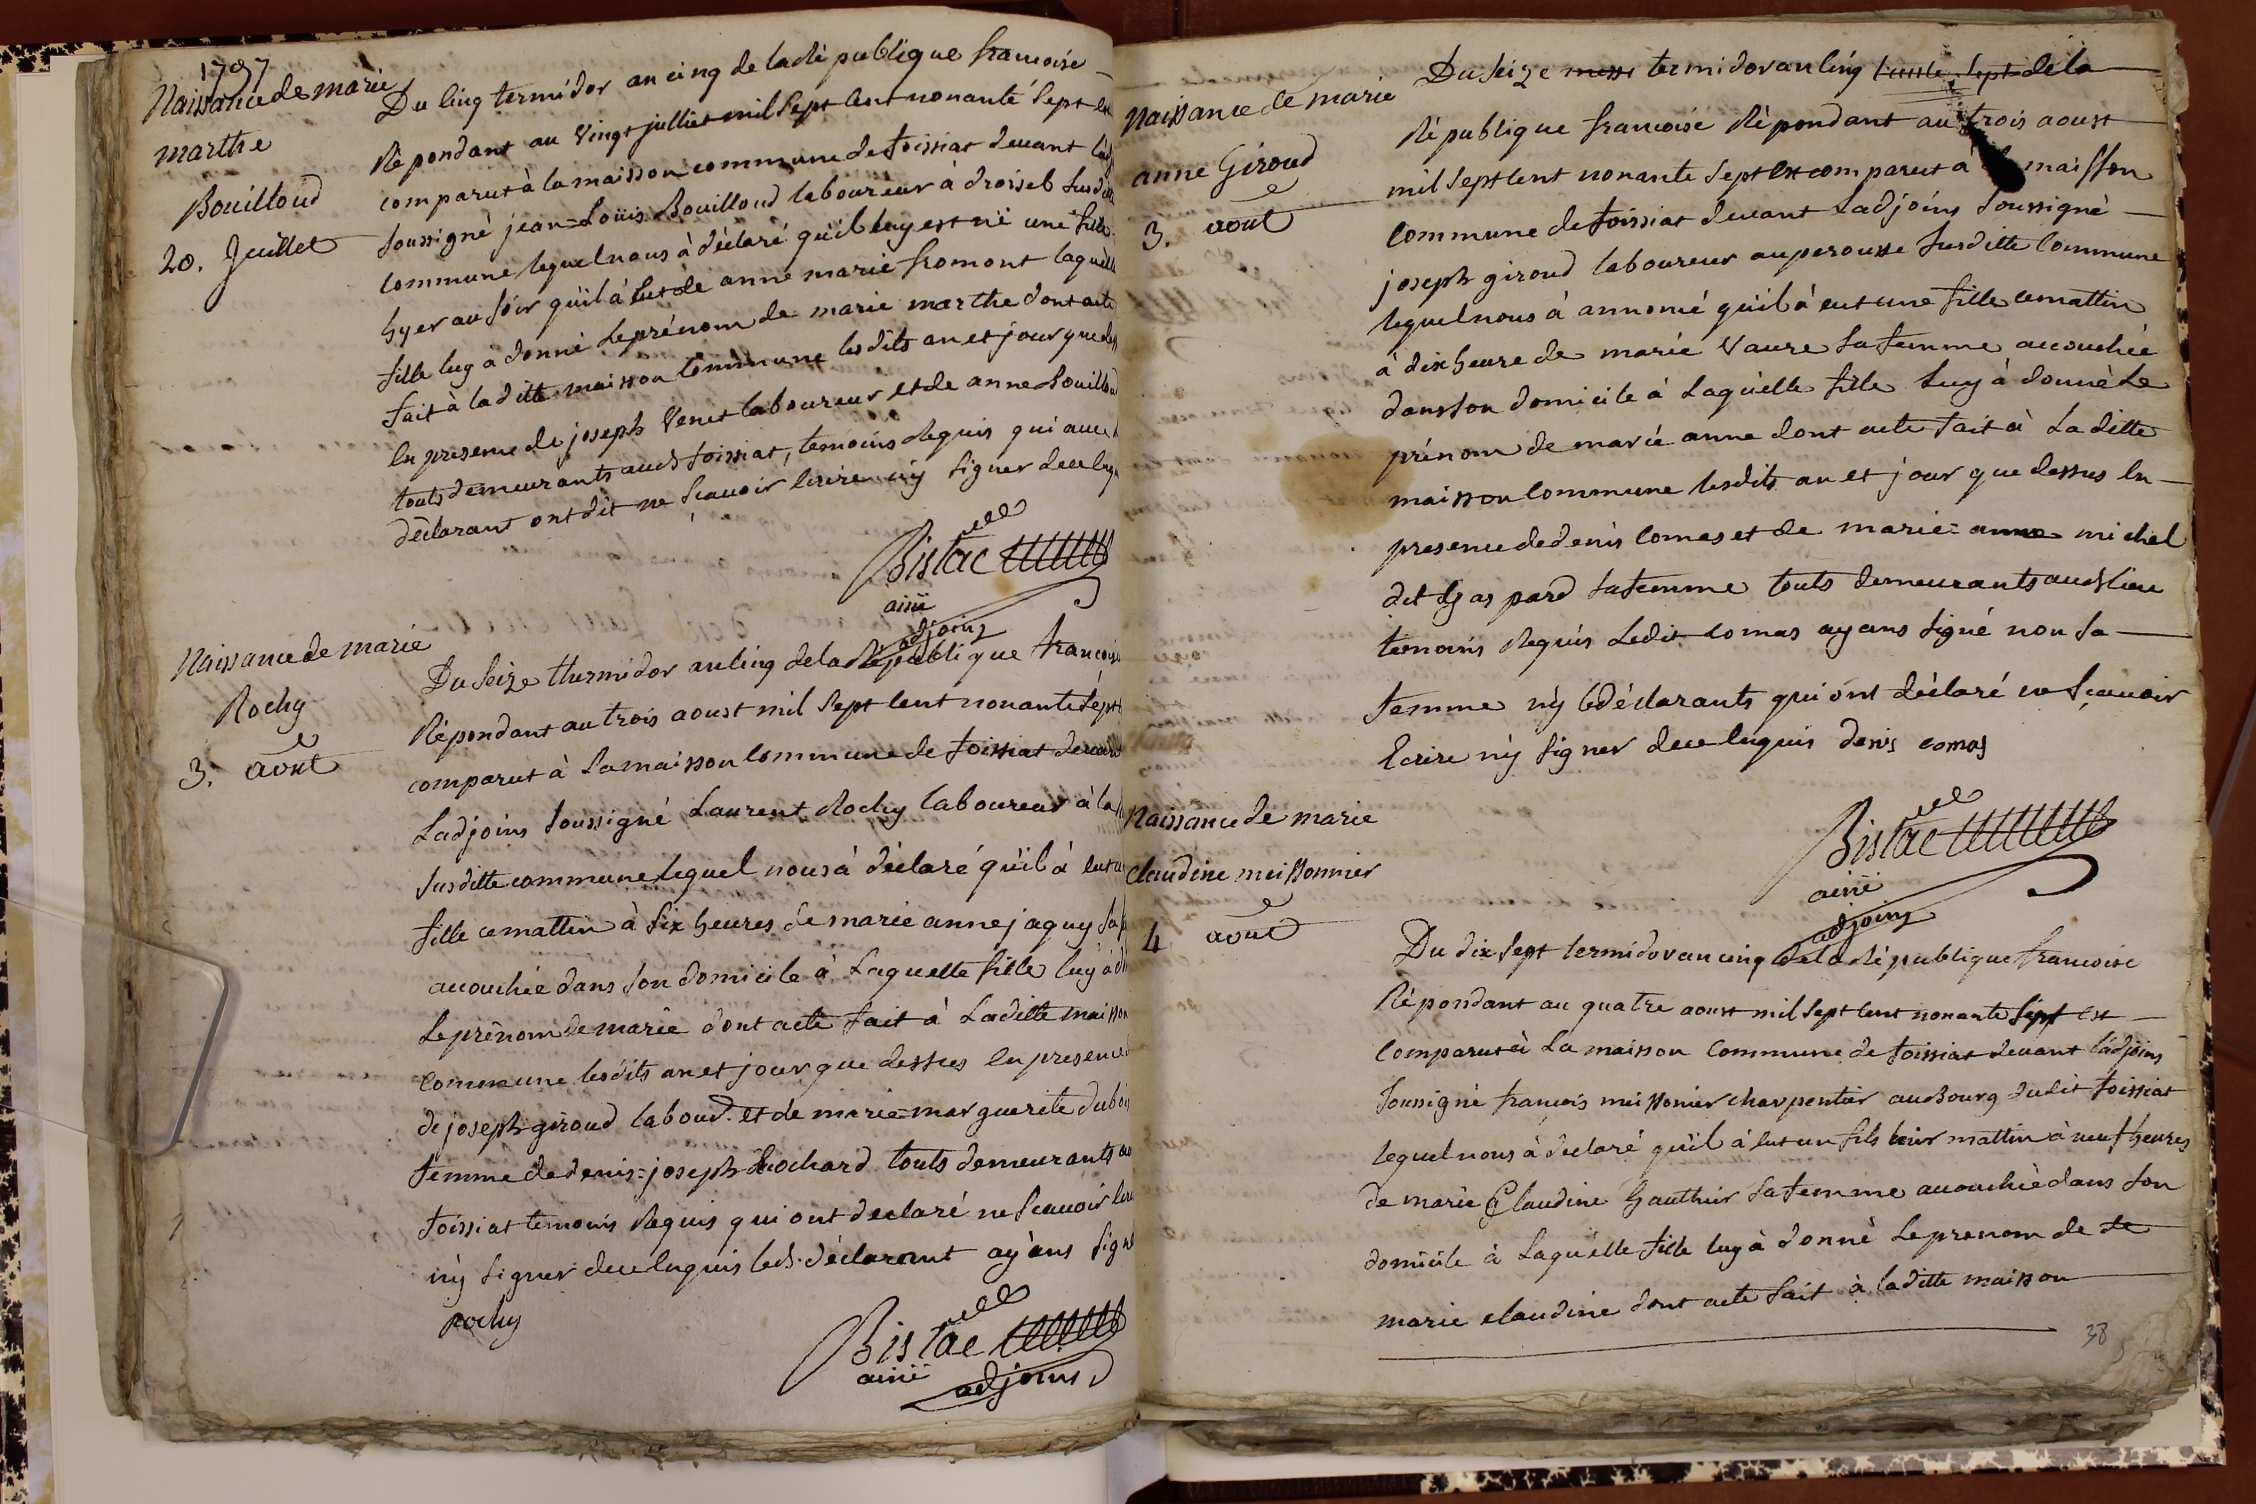 1797
Naissance de marie
marthe
Bouilloud
20. Juillet
Du cinq termidor an cinq de la Rèpublique francoise
Rèpondant au vingt julliet mil sept cent nonante sept est
comparut à la maisson commune de foissiat devant l'adj
soussignè jean=Loüis Bouilloud laboureur à droisel susditte
commune lequel nous à dèclaré qu'il luy est nï une fille
hyer au soir qu'il à eut de anne marie fromont laquelle
fille luy à donné le prénom de marie marthe dont acte
fait à la ditte maisson commune lesdits an et jour que dess
en presence de joseph Venet laboureur et de anne Bouilloud
touts demeurants aud foissiat, temoins Requis qui avec
dèclarant ont dit ne sçauoir écrire ny signer de ce luy
Bistac
ainé
adjoins
Naissance de marie
Rochy
3. aout
Du seize thermidor an cinq de la Rèpublique francois
Rèpondant au trois aoust mil sept cent nonante sept
comparut à la maisson commune de foissiat devant
Ladjoins soussigné Laurent Rochy laboureur à la
susditte commune lequel nous à dèclaré qu'il à eut u
fille ce mattin à six heures de marie anne jaquy sa f
accouchée dans son domicile à laquelle fille luy à d
Le prénom de marie dont acte fait à Laditte maisson
commune lesdits an et jour que dessus en presence
de joseph giroud labour. et de marie=marguerite dubois
femme de denis=joseph Brochard touts demeurants au
foissiat temoins Requis qui ont declaré ne sçauoir écri
ny signer de ce enquis led. déclarant ayans signé
Rochy
Bistac
ainé
adjoins
Naissance de marie
anne Giroud
3. aout
Du seize messi termidor an cinq de la
Rèpublique francoise Rèpondant au trois aoust
mil sept cent nonante sept est comparut a la maisson
commune de foissiat devant Ladjoins soussignè
joseph giroud laboureur au perousse susditte commune
lequel nous à annoncé qu'il à eut une fille ce mattin
à dix heure de marie Vaure sa femme accouchée
dans son domicile à Laquelle fille luy à donnè le
prénom de marie anne dont acte fait à La ditte
maisson commune lesdits an et jour que dessus en
presence de denis comas et de marie=anne michel
dit gaspard sa femme touts demeurants aud lieu
temoins Requis ledit comas ayans signé non sa
femme ny le dèclarants qui ont déclaré ne sçauoir
Ecrire ny signer de ce enquis denis comas
Bistac
ainé
adjoins
Naissance de marie
claudine meissonnier
4 aout
Du dix sept termidor an cinq de la Rèpublique francoise
Rèpondant au quatre aoust mil sept cent nonante sept est
comparut à La maisson commune de foissiat devant l'adjoins
soussigné francois meissonier charpentier au bourg dudit foissiat
lequel nous à declaré qu'il à eut un fils hier mattin à neuf heures
de marie Claudine Gauthier sa femme accouchèe dans son
domicile à Laquelle fille luy à donné le prenom de de
marie claudine dont acte fait à laditte maisson
38